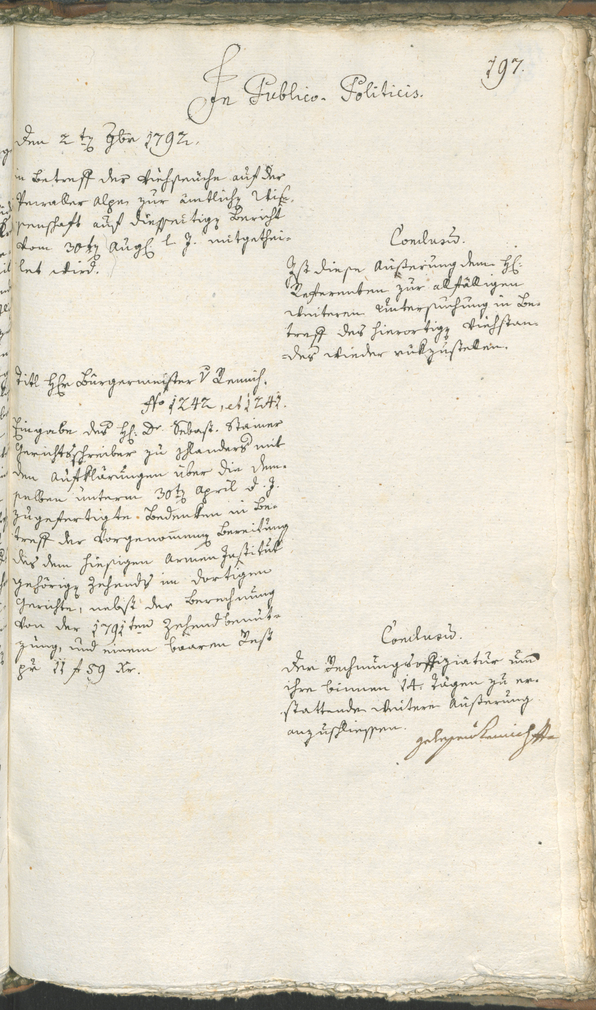 197.
In Publico-Politicis.
Den 2ten 7ber 1792.
in Betreff der Viehseuche auf der
Alpe, zur ämtlichen Wis-
senschaft auf diesseitigen Bericht
vom 30ten Augl l. J. mitgethei-
let wird.
Conclusum.
Ist diese Äußerung dem H:
Referenten zur allfälligen
weiteren Untersuchung in Be-
treff des hierortigen Viehstan-
des wieder rükzustellen.
Titl Hr Bürgermeister v Remich.
No 1242, et 1241.
Eingabe des H: Dr. Sebast. Stainer
Gerichtsschreiber zu Schlanders mit
den Aufklärungen über die dem-
selben unterm 30ten April d. J.
zugefertigte Bedenken in Be-
treff der vorgenomenen Bereitung
des dem hiesigen Armen Institut
gehörigen Zehends im dortigen
Gerichte, nebst der Berechnung
von der 1791ten Zehendbenut-
zung, und einem baaren Rest
pr 11 f 59 Xr.
Conclusum.
Der Rechnungsoffiziatur um
ihre binnen 14 Tägen zu er-
stattende weitere Äußerung
anzuschliessen.
gelesen Remich